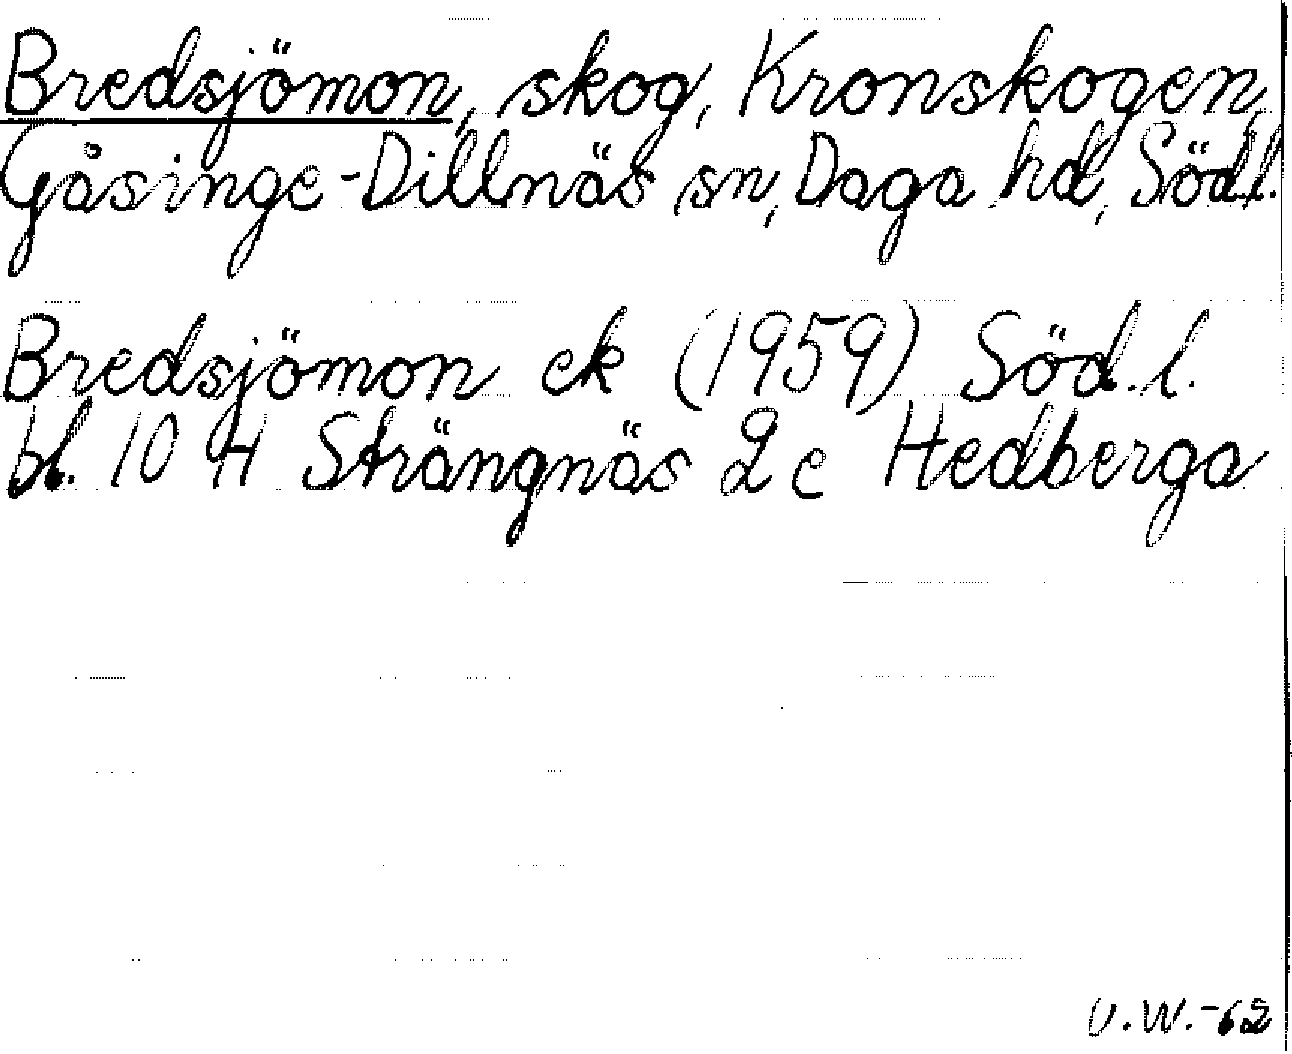 Bredsjömon, skog, Kronskogen,
Gåsinge-Dillnäs sn, Daga hd, Södl.
Bredsjömon ek (1959) Söd.l.
bl. 10 H Strängnäs 2 c Hedberga
U.W.-62